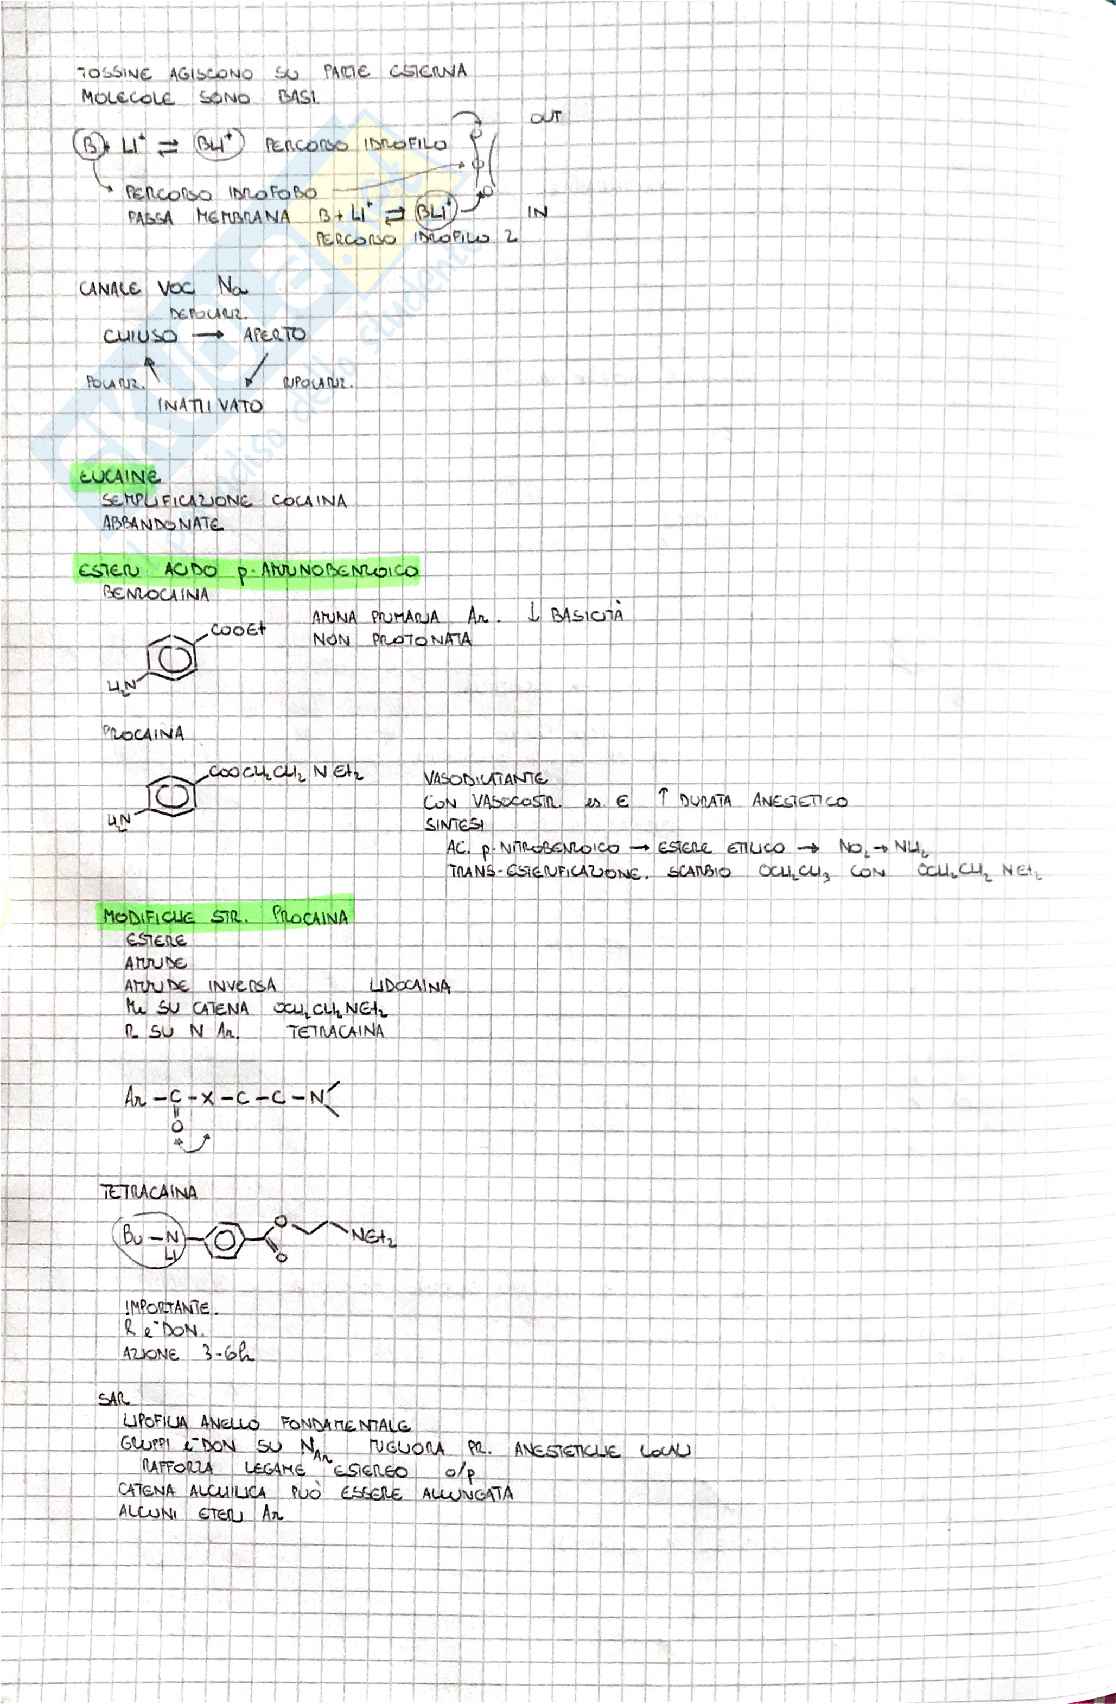 TOSSINE AGISCONO SU PARTE ESTERNA
MOLECOLE SONO BASI
OUT
B + H⁺ ⇌ BH⁺ PERCORSO IDROFILO
PERCORSO IDROFOBO
PASSA MEMBRANA B + H⁺ ⇌ BH⁺ IN
PERCORSO IDROFILO 2
CANALE VOC Na
DEPOLARIZ.
CHIUSO → APERTO
POLARIZ. RIPOLARIZ.
INATTIVATO
EUCAINE
SEMPLIFICAZIONE COCAINA
ABBANDONATE
ESTERI ACIDO p-AMINOBENZOICO
BENZOCAINA
AMINA PRIMARIA Ar. ↓ BASICITÀ
COOEt
NON PROTONATA
H₂N
PROCAINA
COOCH₂CH₂NEt₂
VASODILATANTE
CON VASOCOSTR. es. E ↑ DURATA ANESTETICO
H₂N
SINTESI
AC. p-NITROBENZOICO → ESTERE ETILICO → NO₂ → NH₂
TRANS-ESTERIFICAZIONE. SCAMBIO OCH₂CH₃ CON OCH₂CH₂NEt₂
MODIFICHE STR. PROCAINA
ESTERE
AMMIDE
AMMIDE INVERSA LIDOCAINA
Me SU CATENA OCH₂CH₂NEt₂
R SU N Ar. TETRACAINA
Ar - C - X - C - C - N
O
TETRACAINA
Bu - N
H
O
O
NEt₂
IMPORTANTE.
R e⁻DON.
AZIONE 3-6h
SAR
LIPOFILIA ANELLO FONDAMENTALE
GRUPPI e⁻DON SU N_Ar MIGLIORA PR. ANESTETICHE LOCALI
RAFFORZA LEGAME ESTEREO o/p
CATENA ALCHILICA PUÒ ESSERE ALLUNGATA
ALCUNI ETERI Ar